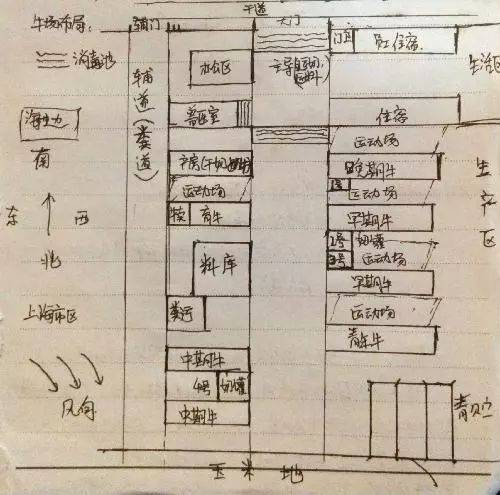 干道
牛场布局:
辅门
大门
门卫
员工住宿
生活区
消毒池
办公区
主导
辅道(粪道)
兽医室
住宿
运动场
南
东
西
北
产房
运动场
晚期牛
运动场
生产区
犊
育牛
早期牛
1号
奶罐
3号
运动场
料库
早期牛
上海市区
粪污
运动场
青年牛
中期牛
4号
奶罐
中期牛
风向
青贮
玉米地